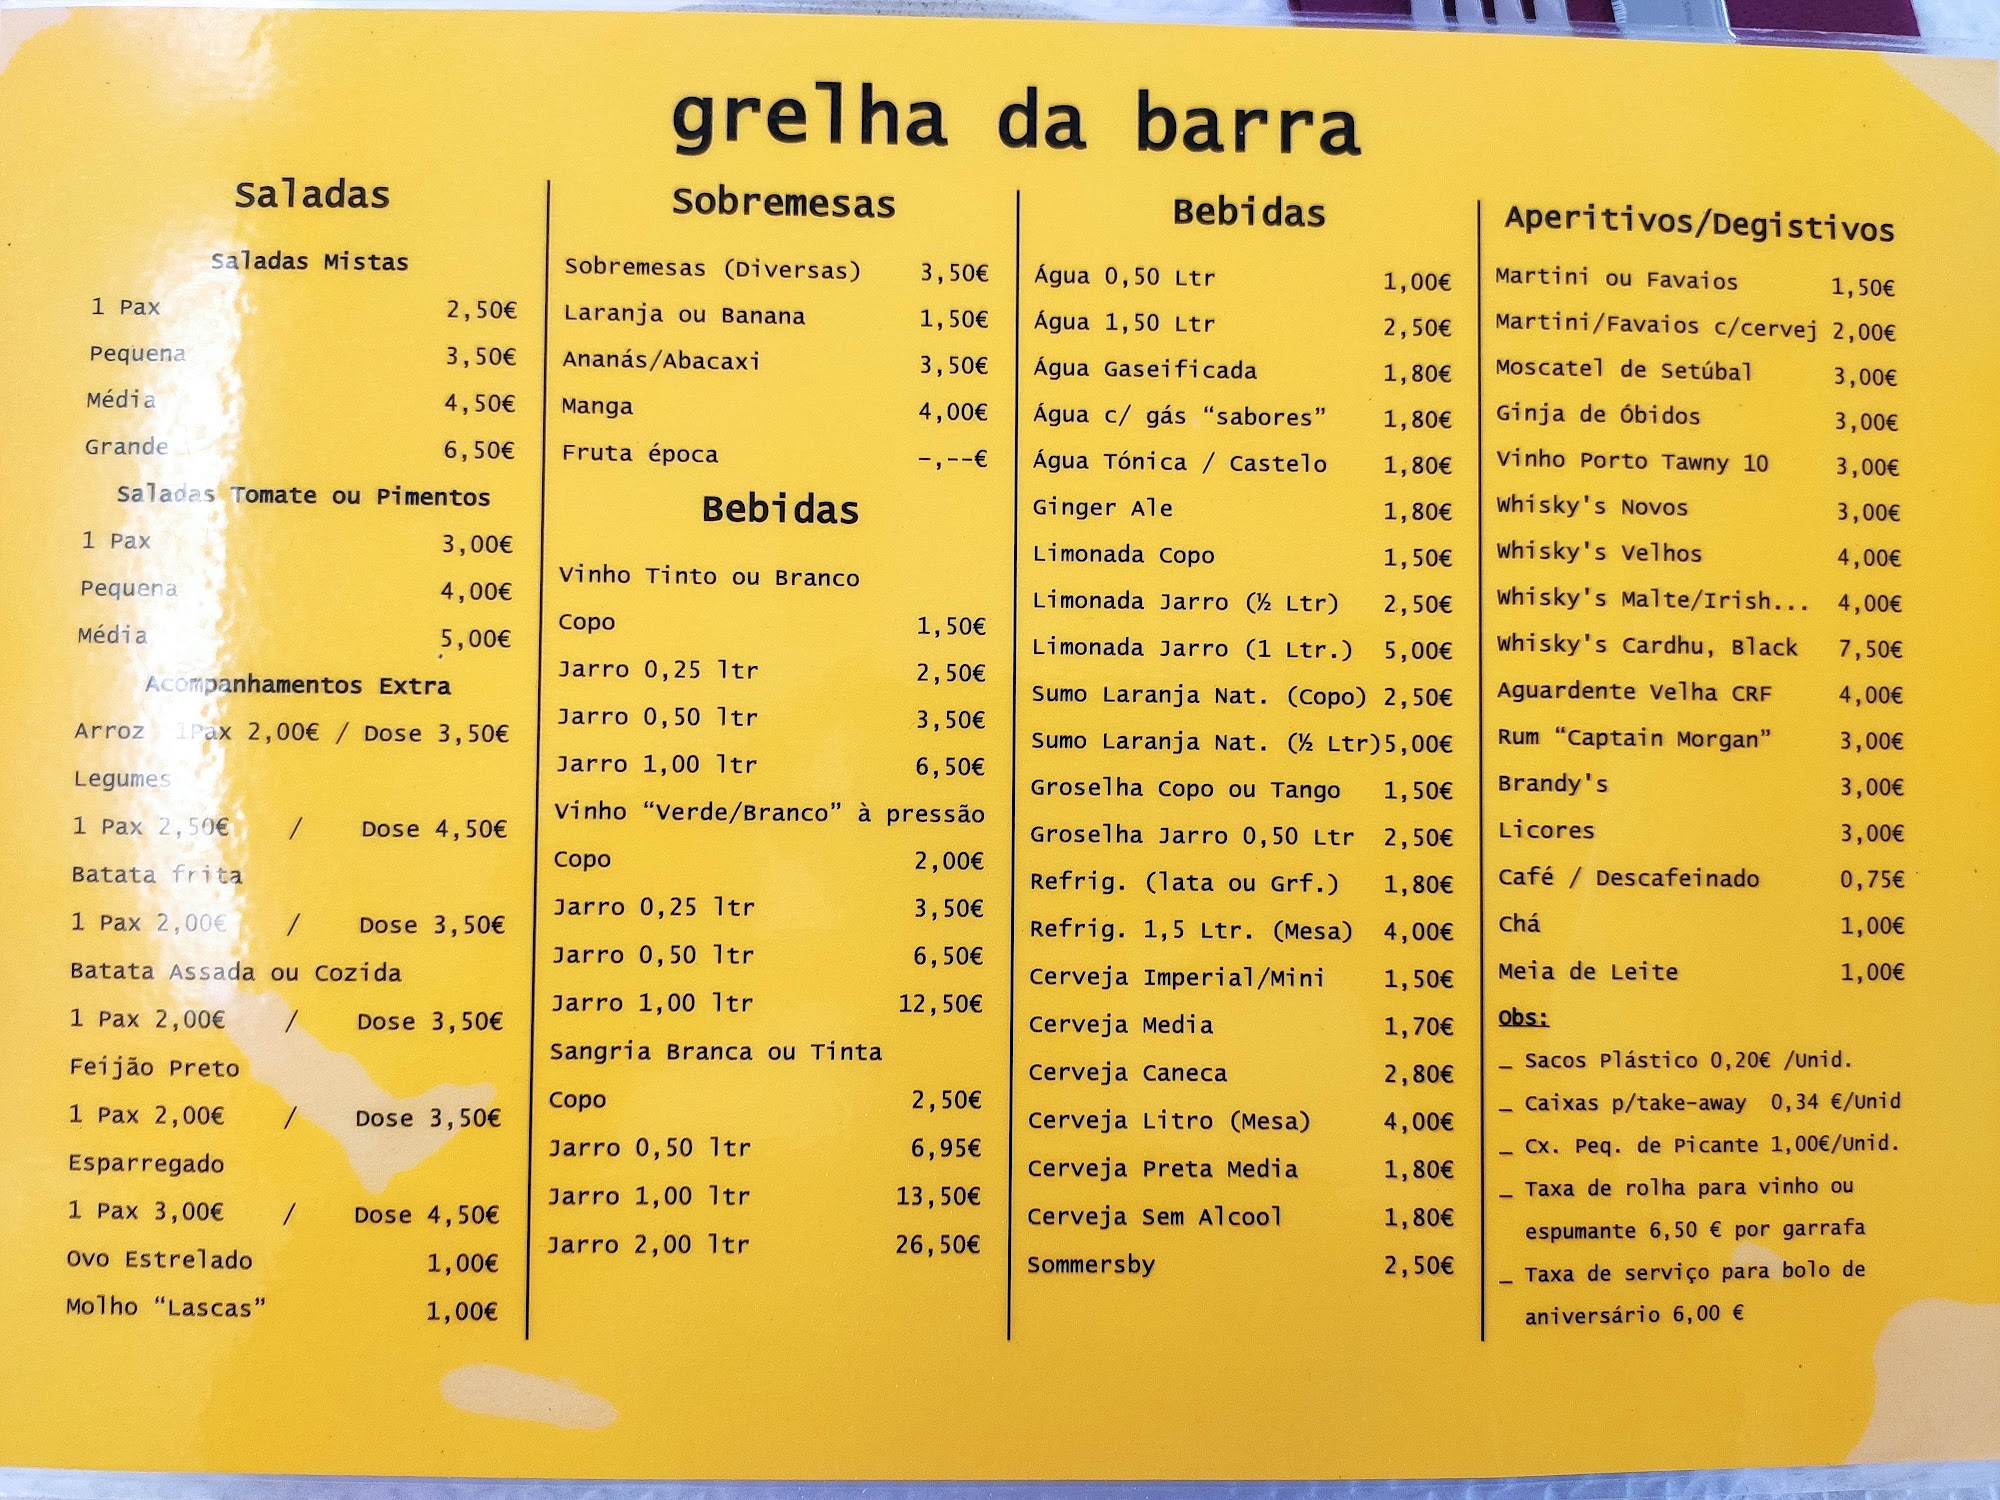 grelha da barra
Saladas
Saladas Mistas
1 Pax 2,50€
Pequena 3,50€
Média 4,50€
Grande 6,50€
Saladas Tomate ou Pimentos
1 Pax 3,00€
Pequena 4,00€
Média 5,00€
Acompanhamentos Extra
Arroz 1Pax 2,00€ / Dose 3,50€
Legumes
1 Pax 2,50€ / Dose 4,50€
Batata frita
1 Pax 2,00€ / Dose 3,50€
Batata Assada ou Cozida
1 Pax 2,00€ / Dose 3,50€
Feijão Preto
1 Pax 2,00€ / Dose 3,50€
Esparregado
1 Pax 3,00€ / Dose 4,50€
Ovo Estrelado 1,00€
Molho “Lascas” 1,00€
Sobremesas
Sobremesas (Diversas) 3,50€
Laranja ou Banana 1,50€
Ananás/Abacaxi 3,50€
Manga 4,00€
Fruta época –,--€
Bebidas
Vinho Tinto ou Branco
Copo 1,50€
Jarro 0,25 ltr 2,50€
Jarro 0,50 ltr 3,50€
Jarro 1,00 ltr 6,50€
Vinho “Verde/Branco” à pressão
Copo 2,00€
Jarro 0,25 ltr 3,50€
Jarro 0,50 ltr 6,50€
Jarro 1,00 ltr 12,50€
Sangria Branca ou Tinta
Copo 2,50€
Jarro 0,50 ltr 6,95€
Jarro 1,00 ltr 13,50€
Jarro 2,00 ltr 26,50€
Bebidas
Água 0,50 Ltr 1,00€
Água 1,50 Ltr 2,50€
Água Gaseificada 1,80€
Água c/ gás “sabores” 1,80€
Água Tónica / Castelo 1,80€
Ginger Ale 1,80€
Limonada Copo 1,50€
Limonada Jarro (½ Ltr) 2,50€
Limonada Jarro (1 Ltr.) 5,00€
Sumo Laranja Nat. (Copo) 2,50€
Sumo Laranja Nat. (½ Ltr) 5,00€
Groselha Copo ou Tango 1,50€
Groselha Jarro 0,50 Ltr 2,50€
Refrig. (lata ou Grf.) 1,80€
Refrig. 1,5 Ltr. (Mesa) 4,00€
Cerveja Imperial/Mini 1,50€
Cerveja Media 1,70€
Cerveja Caneca 2,80€
Cerveja Litro (Mesa) 4,00€
Cerveja Preta Media 1,80€
Cerveja Sem Alcool 1,80€
Sommersby 2,50€
Aperitivos/Degistivos
Martini ou Favaios 1,50€
Martini/Favaios c/cervej 2,00€
Moscatel de Setúbal 3,00€
Ginja de Óbidos 3,00€
Vinho Porto Tawny 10 3,00€
Whisky's Novos 3,00€
Whisky's Velhos 4,00€
Whisky's Malte/Irish... 4,00€
Whisky's Cardhu, Black 7,50€
Aguardente Velha CRF 4,00€
Rum “Captain Morgan” 3,00€
Brandy's 3,00€
Licores 3,00€
Café / Descafeinado 0,75€
Chá 1,00€
Meia de Leite 1,00€
Obs:
_ Sacos Plástico 0,20€ /Unid.
_ Caixas p/take-away 0,34 €/Unid
_ Cx. Peq. de Picante 1,00€/Unid.
_ Taxa de rolha para vinho ou
espumante 6,50 € por garrafa
_ Taxa de serviço para bolo de
aniversário 6,00 €